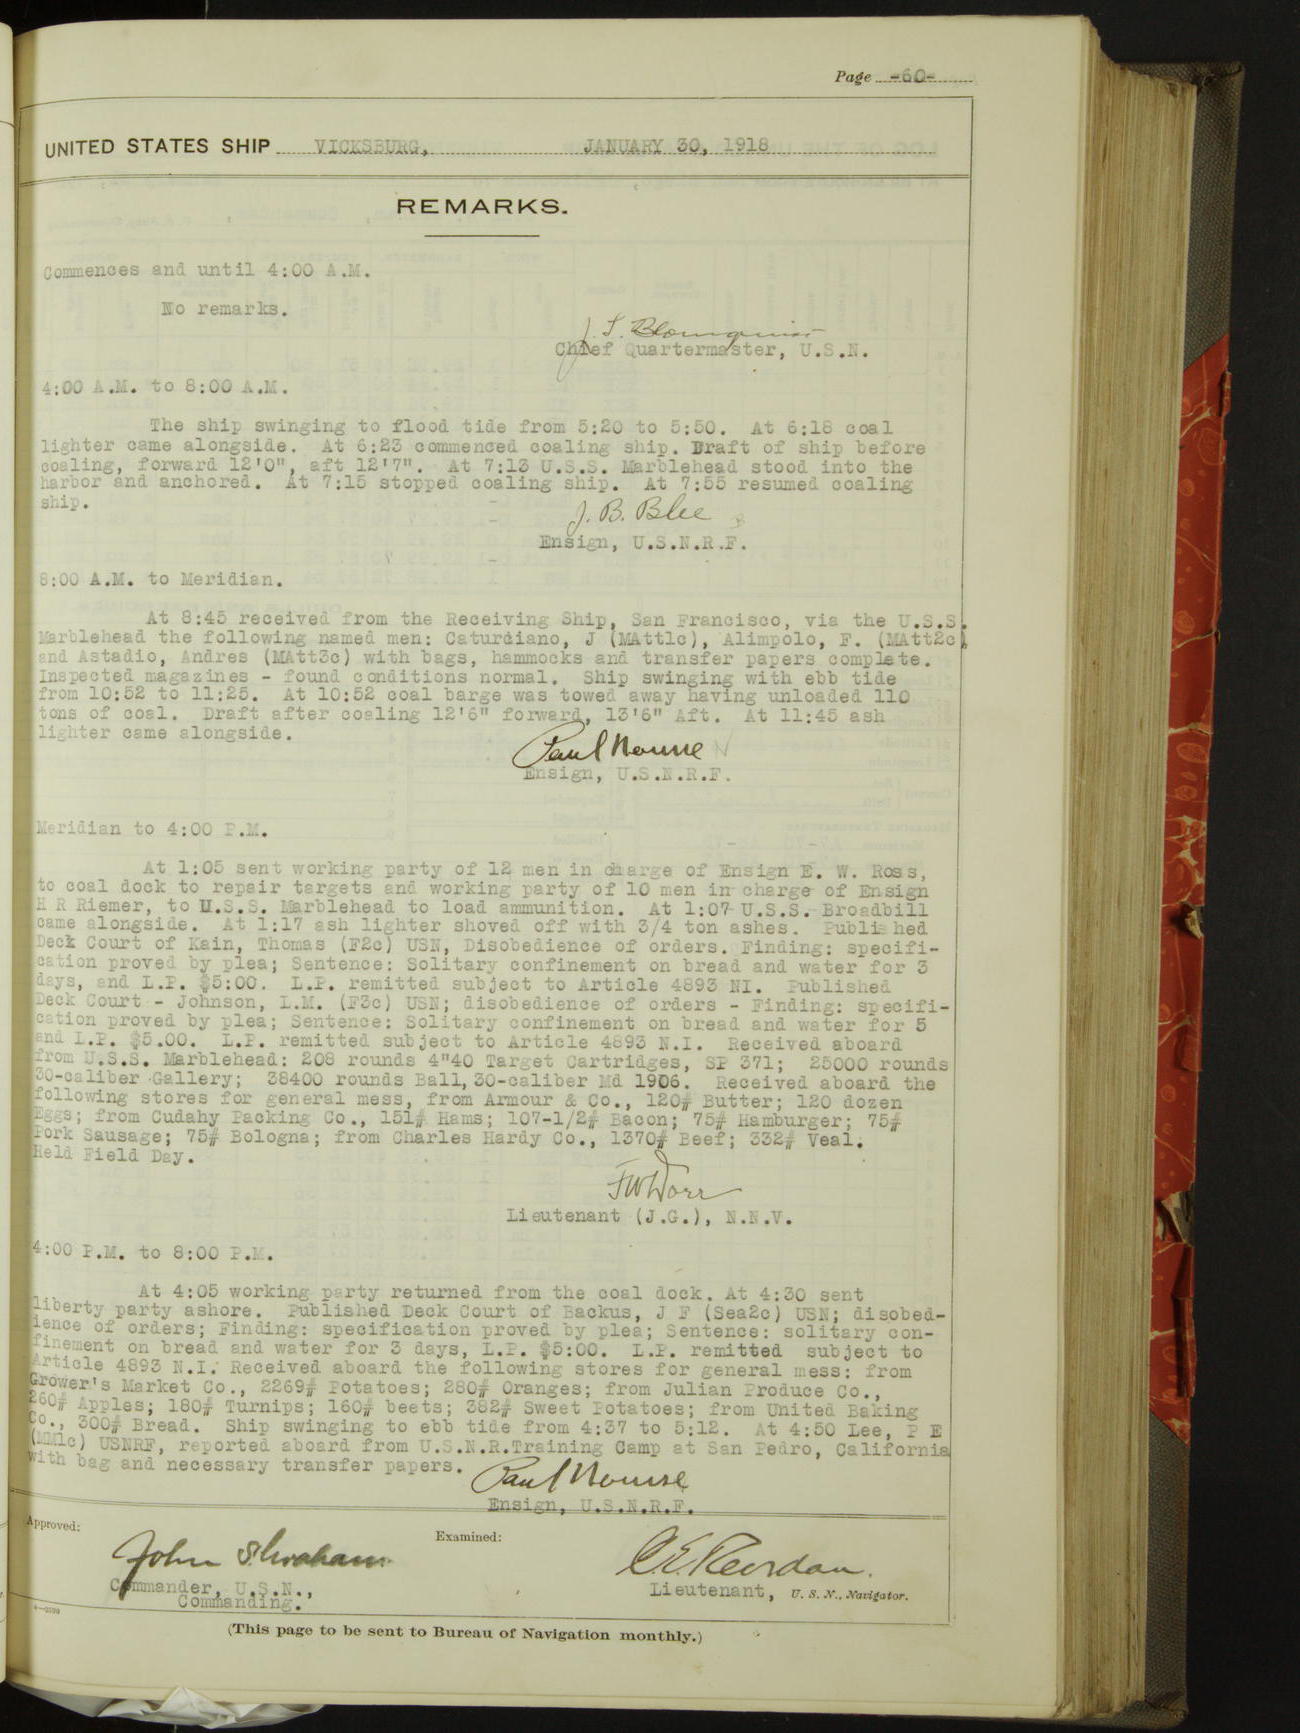 Page -60-
UNITED STATES SHIP VICKSBURG, JANUARY 30, 1918
REMARKS.
Commences and until 4:00 A.M.
No remarks.
J. T. Blomquist
Chief Quartermaster, U.S.N.
4:00 A.M. to 8:00 A.M.
The ship swinging to flood tide from 5:20 to 5:50. At 6:18 coal
lighter came alongside. At 6:23 commenced coaling ship. Draft of ship before
coaling, forward 12'0", aft 12'7". At 7:13 U.S.S. Marblehead stood into the
harbor and anchored. At 7:15 stopped coaling ship. At 7:55 resumed coaling
ship.
J. B. Blee
Ensign, U.S.N.R.F.
8:00 A.M. to Meridian.
At 8:45 received from the Receiving Ship, San Francisco, via the U.S.S.
Marblehead the following named men: Caturdiano, J (MAtt1c), Alimpolo, F. (MAtt2c),
and Astadio, Andres (MAtt3c) with bags, hammocks and transfer papers complete.
Inspected magazines - found conditions normal. Ship swinging with ebb tide
from 10:52 to 11:25. At 10:52 coal barge was towed away having unloaded 110
tons of coal. Draft after coaling 12'6" forward, 13'6" Aft. At 11:45 ash
lighter came alongside.
Paul Nourse
Ensign, U.S.N.R.F.
Meridian to 4:00 P.M.
At 1:05 sent working party of 12 men in charge of Ensign E. W. Ross,
to coal dock to repair targets and working party of 10 men in charge of Ensign
H R Riemer, to U.S.S. Marblehead to load ammunition. At 1:07 U.S.S. Broadbill
came alongside. At 1:17 ash lighter shoved off with 3/4 ton ashes. Published
Deck Court of Kain, Thomas (F2c) USN, Disobedience of orders. Finding: specifi-
cation proved by plea; Sentence: Solitary confinement on bread and water for 3
days, and L.P. $5:00. L.P. remitted subject to Article 4893 NI. Published
Deck Court - Johnson, L.M. (F3c) USN; disobedience of orders - Finding: specifi-
cation proved by plea; Sentence: Solitary confinement on bread and water for 5
and L.P. $5.00. L.P. remitted subject to Article 4893 N.I. Received aboard
from U.S.S. Marblehead: 208 rounds 4"40 Target Cartridges, SP 371; 25000 rounds
30-caliber Gallery; 38400 rounds Ball, 30-caliber Md 1906. Received aboard the
following stores for general mess, from Armour & Co., 120# Butter; 120 dozen
Eggs; from Cudahy Packing Co., 151# Hams; 107-1/2# Bacon; 75# Hamburger; 75#
Pork Sausage; 75# Bologna; from Charles Hardy Co., 1370# Beef; 332# Veal.
Held Field Day.
F W Dorr
Lieutenant (J.G.), N.N.V.
4:00 P.M. to 8:00 P.M.
At 4:05 working party returned from the coal dock. At 4:30 sent
liberty party ashore. Published Deck Court of Backus, J F (Sea2c) USN; disobed-
ience of orders; Finding: specification proved by plea; Sentence: solitary con-
finement on bread and water for 3 days, L.P. $5:00. L.P. remitted subject to
Article 4893 N.I. Received aboard the following stores for general mess: from
Grower's Market Co., 2269# Potatoes; 280# Oranges; from Julian Produce Co.,
260# Apples; 180# Turnips; 160# beets; 382# Sweet Potatoes; from United Baking
Co., 300# Bread. Ship swinging to ebb tide from 4:37 to 5:12. At 4:50 Lee, P E
(MM1c) USNRF, reported aboard from U.S.N.R.Training Camp at San Pedro, California
with bag and necessary transfer papers.
Paul Nourse
Ensign, U.S.N.R.F.
Approved:
Examined:
John S. Graham
C. E. Reordan.
Commander, U.S.N.,
Commanding.
Lieutenant, U. S. N., Navigator.
(This page to be sent to Bureau of Navigation monthly.)